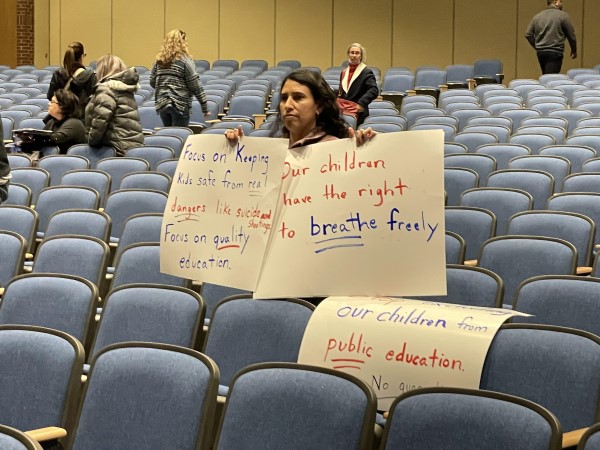 Focus on Keeping
Kids safe from real
dangers like suicide and
shootings
Focus on quality
education.
Our children
have the right
to breathe freely
our children from
public education.
No